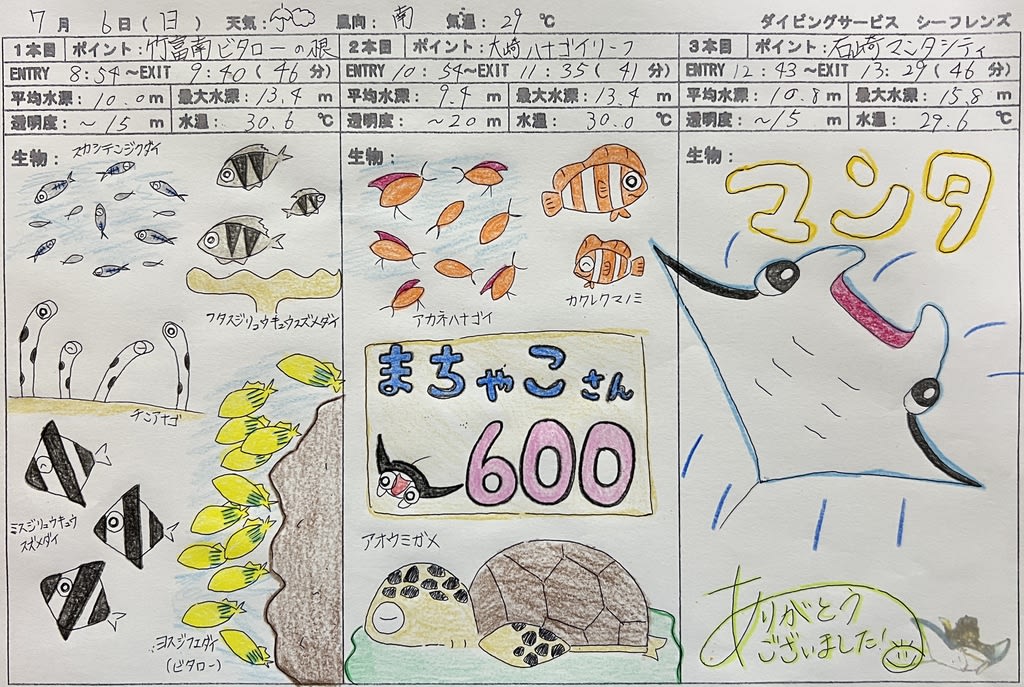 7月 6日(日) 天気: 風向: 南 気温: 29 ℃ ダイビングサービス シーフレンズ
1本目 ポイント: 竹富南ビタローの根
ENTRY 8:54~EXIT 9:40(46分)
平均水深: 10.0m 最大水深: 13.4m
透明度: ~15m 水温: 30.6℃
生物:
スカシテンジクダイ
フタスジリュウキュウスズメダイ
チンアナゴ
ミスジリュウキュウ
スズメダイ
ヨスジフエダイ
(ビタロー)
2本目 ポイント: 大崎ハナゴイリーフ
ENTRY 10:54~EXIT 11:35(41分)
平均水深: 9.4m 最大水深: 13.4m
透明度: ~20m 水温: 30.0℃
生物:
アカネハナゴイ
カクレクマノミ
まちゃこさん
600
アオウミガメ
3本目 ポイント: 石崎マンタシティ
ENTRY 12:43~EXIT 13:29(46分)
平均水深: 10.8m 最大水深: 15.8m
透明度: ~15m 水温: 29.6℃
生物:
マンタ
ありがとう
ございました!